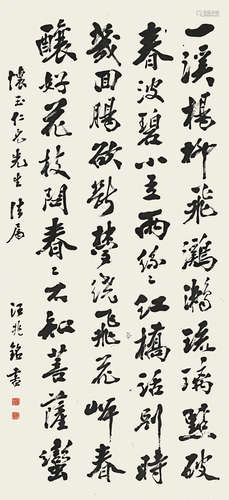 一溪楊柳飛鸂鶒琉璃點破
春波碧小立雨絲〻紅橋話別時
幾回腸欲斷夢繞飛花岸春
釀好花枝問春〻不知菩薩蠻
懷玉仁兄先生法屬
汪兆銘書